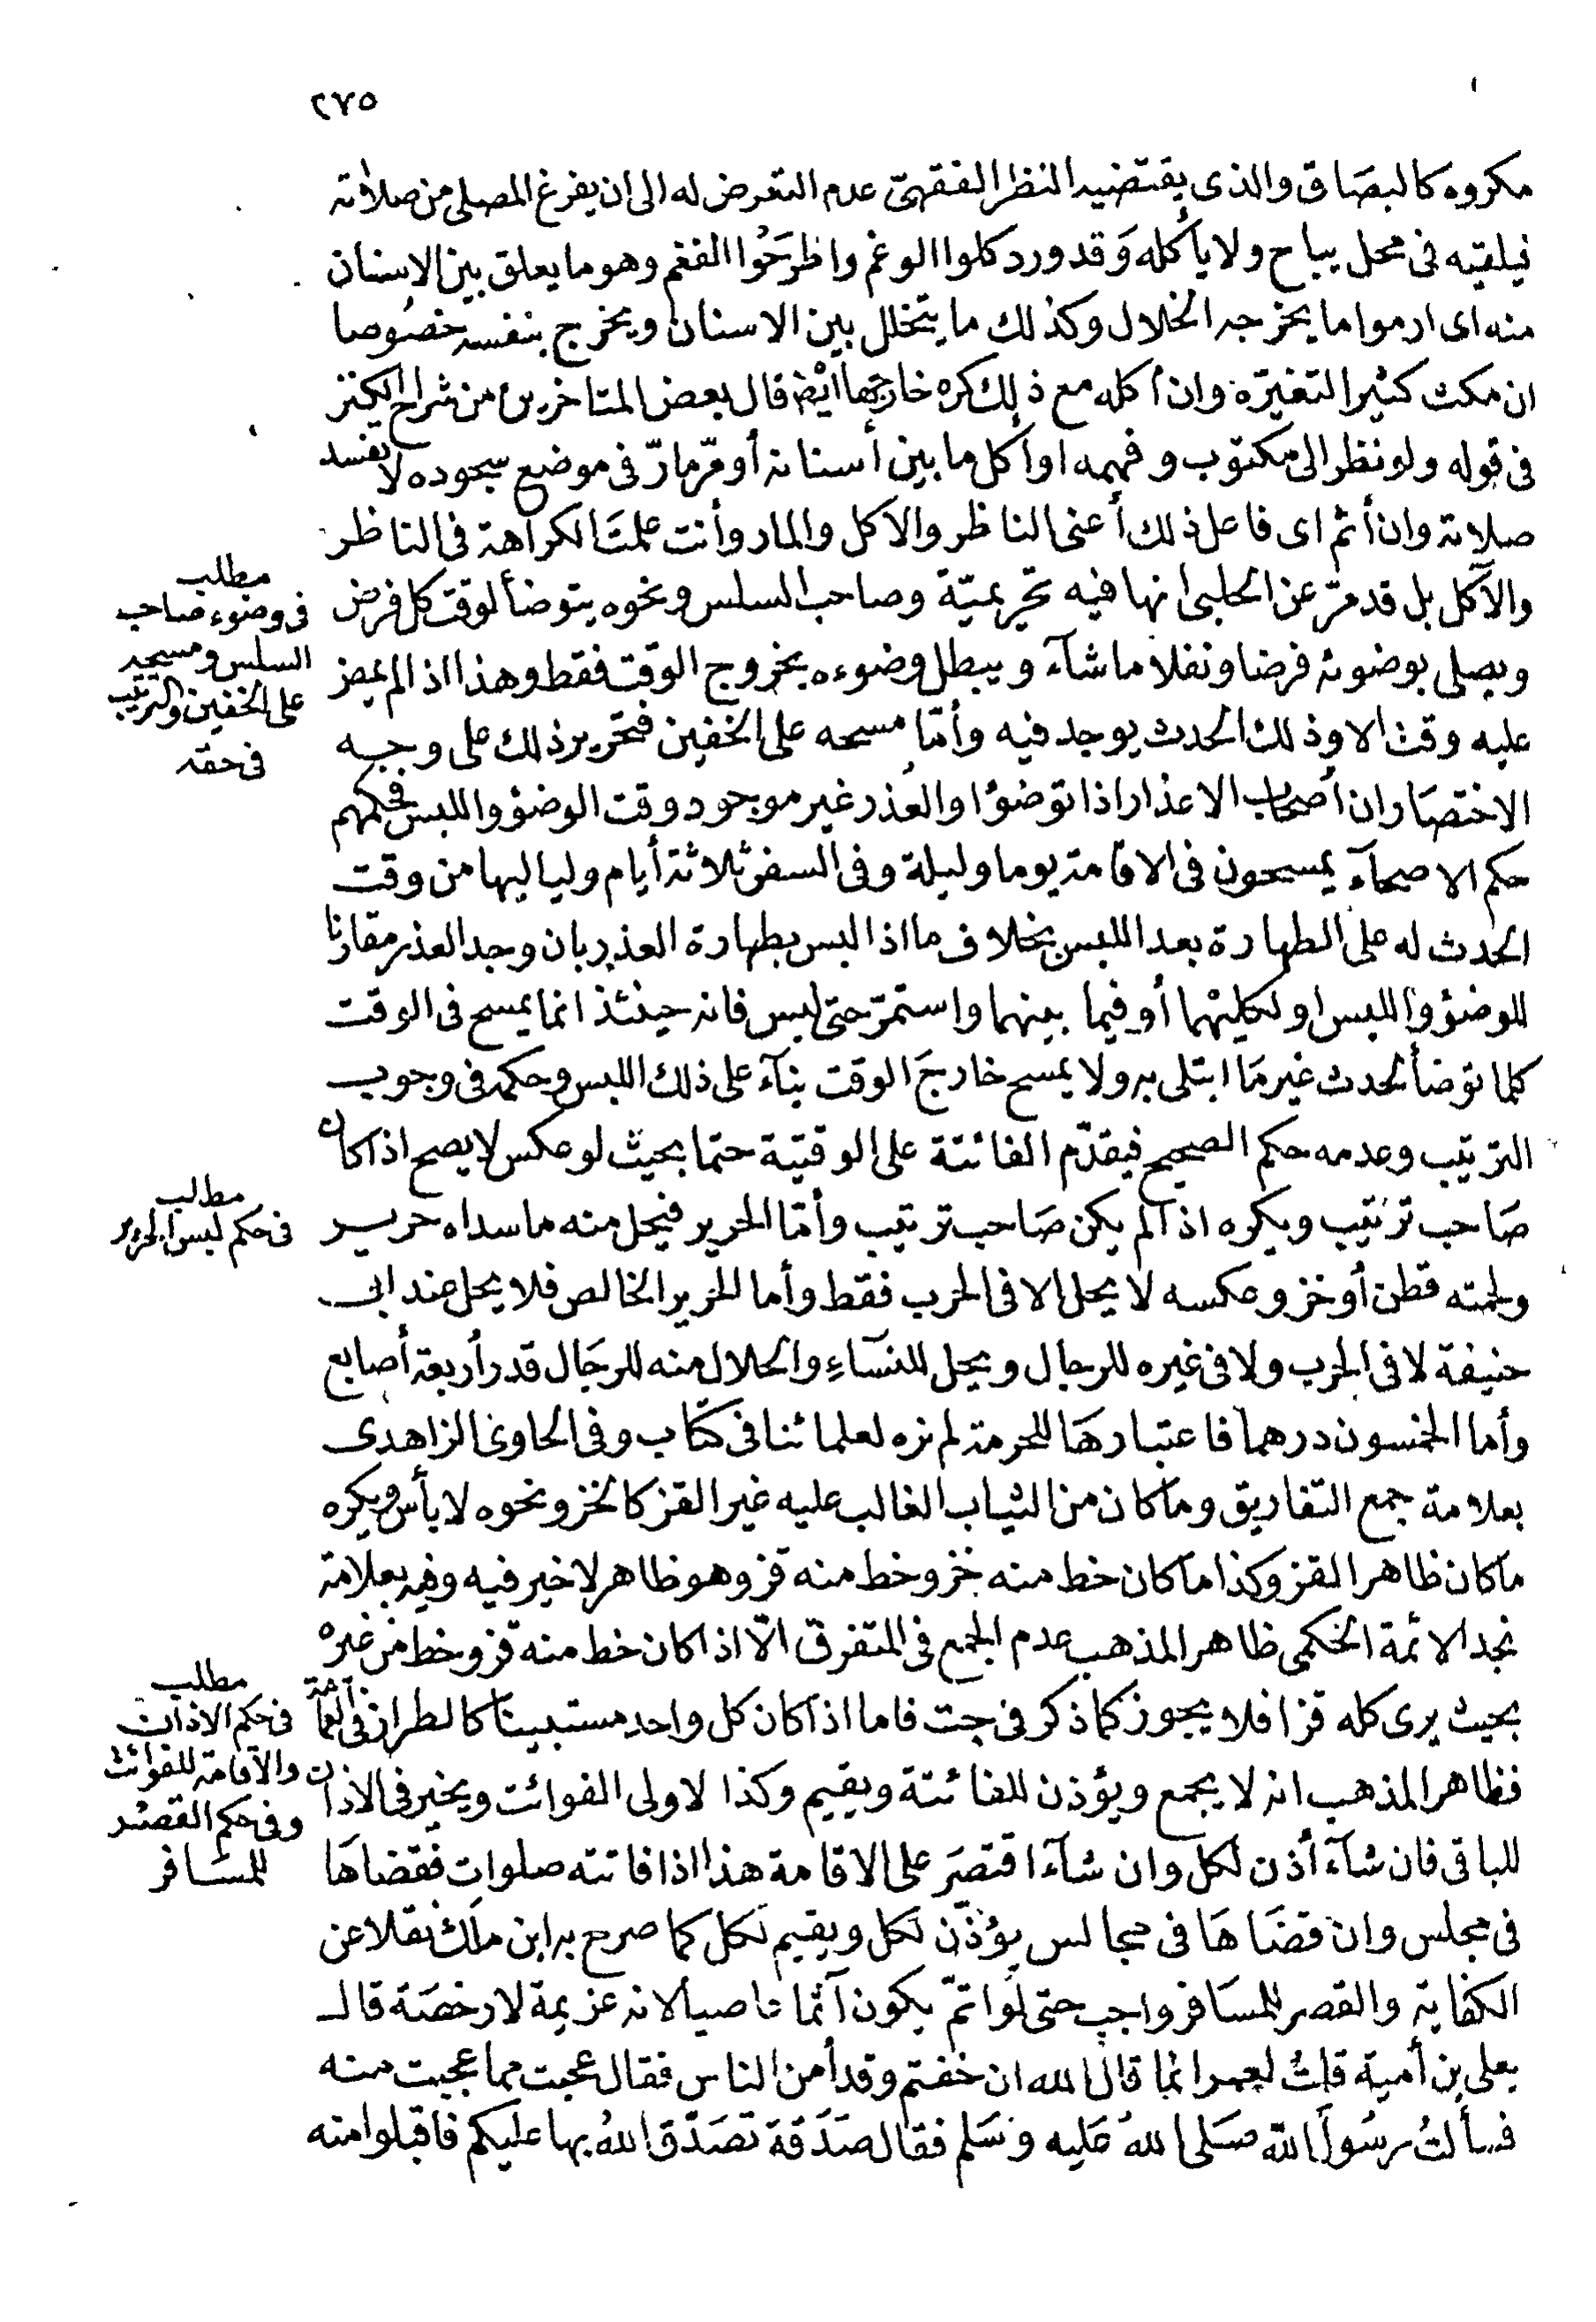 ٢٧٥
مكروه كالبصاق والذى يقتضيه النظر الفقهىّ عدم التعرض له الى ان يفرغ المصلى من صلاته
فيلقيه فى محل يباح ولا يأكله وَقد ورد كلوا الوغم واطرَحُوا الفغم وهو ما يعلق بين الاسنان
منه اى ارموا ما يخرجه الخلال وكذلك ما يتخلل بين الاسنان ويخرج بنفسه خصُوصا
ان مكث كثيرا لتغيّره وان أكله مع ذلك كره خارجها أيْضا قال بعض المتاخرين من شراح الكنز
فى قوله ولو نظر الى مكتوب وفهمه او أكل ما بين أسنانه أو مرّ مارّ فى موضع سجوده لا تفسد
صلاته وان أثم اى فاعل ذلك أعنى الناظر والآكل والمار وأنت علمتَ الكراهة فى الناظر
والآكل بل قد مرّ عن الحلبى انها فيه تحريميّة وصاحب السلس ونحوه يتوضأ لوقت كل فرض
ويصلى بوضوئه فرضا ونفلا ما شآء ويبطل وضوءه بخروج الوقت فقط وهذا اذا لم يمض
عليه وقت الا وذلك الحدث يوجد فيه وأمّا مسحه على الخفين فتحرير ذلك على وجه
الاختصَار ان أصحاب الاعذار اذا توضؤا والعُذر غير موجود وقت الوضؤ واللبس فحكمهم
حكم الاصحآء يمسحون فى الاقامة يوما وليلة وفى السفر ثلاثة أيام ولياليها من وقت
الحدث له على الطهارة بعد اللبس بخلاف ما اذا لبس بطهارة العذر بان وجد العذر مقارنا
للوضؤ واللبس او لكليْهما أو فيما بينهما واستمرّ حتى لبس فانه حينئذ انما يمسح فى الوقت
كلما توضأ لحدث غير مَا ابتلى به ولا يمسح خارجَ الوقت بنآء على ذلك اللبس وحكمه فى وجوب
الترتيب وعدمه حكم الصحيح فيقدّم الفائتة على الوقتيّة حتما بحيث لو عكس لا يصح اذا كان
صَاحب ترتيب ويكره اذا لم يكن صَاحب ترتيب وأمّا الحرير فيحل منه ما سداه حرير
ولحمته قطن أو خز وعكسه لا يحل الا فى الحرب فقط وأما الحرير الخالص فلا يحل عند ابى
حنيفة لا فى الحرب ولا فى غيره للرجال ويحل للنسآءِ والحلال منه للرجَال قدر أربعة أصابع
وأما الخمسون درهما فاعتبارهَا للحرمة لم نره لعلمائنا فى كتاب وفى الحاوى الزاهدى
بعلامة جمع التفاريق وما كان من الثياب الغالب عليه غير القز كالخز ونحوه لا بأس ويكره
ما كان ظاهر القز وكذا ما كان خط منه خز وخط منه قز وهو ظاهر لا خير فيه وفيه بعلامة
نجد الائمة الحكمى ظاهر المذهب عدم الجمع فى المتفرق الّا اذا كان خط منه قز وخط من غيره
بحيث يرى كله قزا فلا يجوز كما ذكر فى جت فاما اذا كان كل واحد مستبينا كالطراز فى العمامة
فظاهر المذهب انه لا يجمع ويؤذن للفائتة ويقيم وكذا لاولى الفوائت ويخير فى الاذان
للباقى فان شآء أذن لكل وان شآء اقتصَر على الاقامة هذا اذا فاتته صلوات فقضاهَا
فى مجلس وان قضَاهَا فى مجالس يؤذّن لكل ويقيم لكل كما صرح به ابن ملَك نقلا عن
الكفاية والقصر للمسَافر واجب حتى لَو اتمّ يكون آثما عاصيا لانه عزيمة لا رخصَة قال
يعلى بن أمية قلتُ لعمر انما قال الله ان خفتم وقد أمن الناس فقال عجبت مما عجبت منه
فسألتُ رسُولَ اللّه صَلى اللهُ عَليه وَسَلم فقال صَدَقة تصَدّق اللهُ بها عليكم فاقبلوا منه
مطلب
فى وضوء صاحب
السلس ومسحه
على الخفين والترتيب
فى حقه
مطلب
فى حكم لبس الحرير
مطلب
فى حكم الاذان
والاقامة للفوائت
وفى حكم القصر
للمسَافر